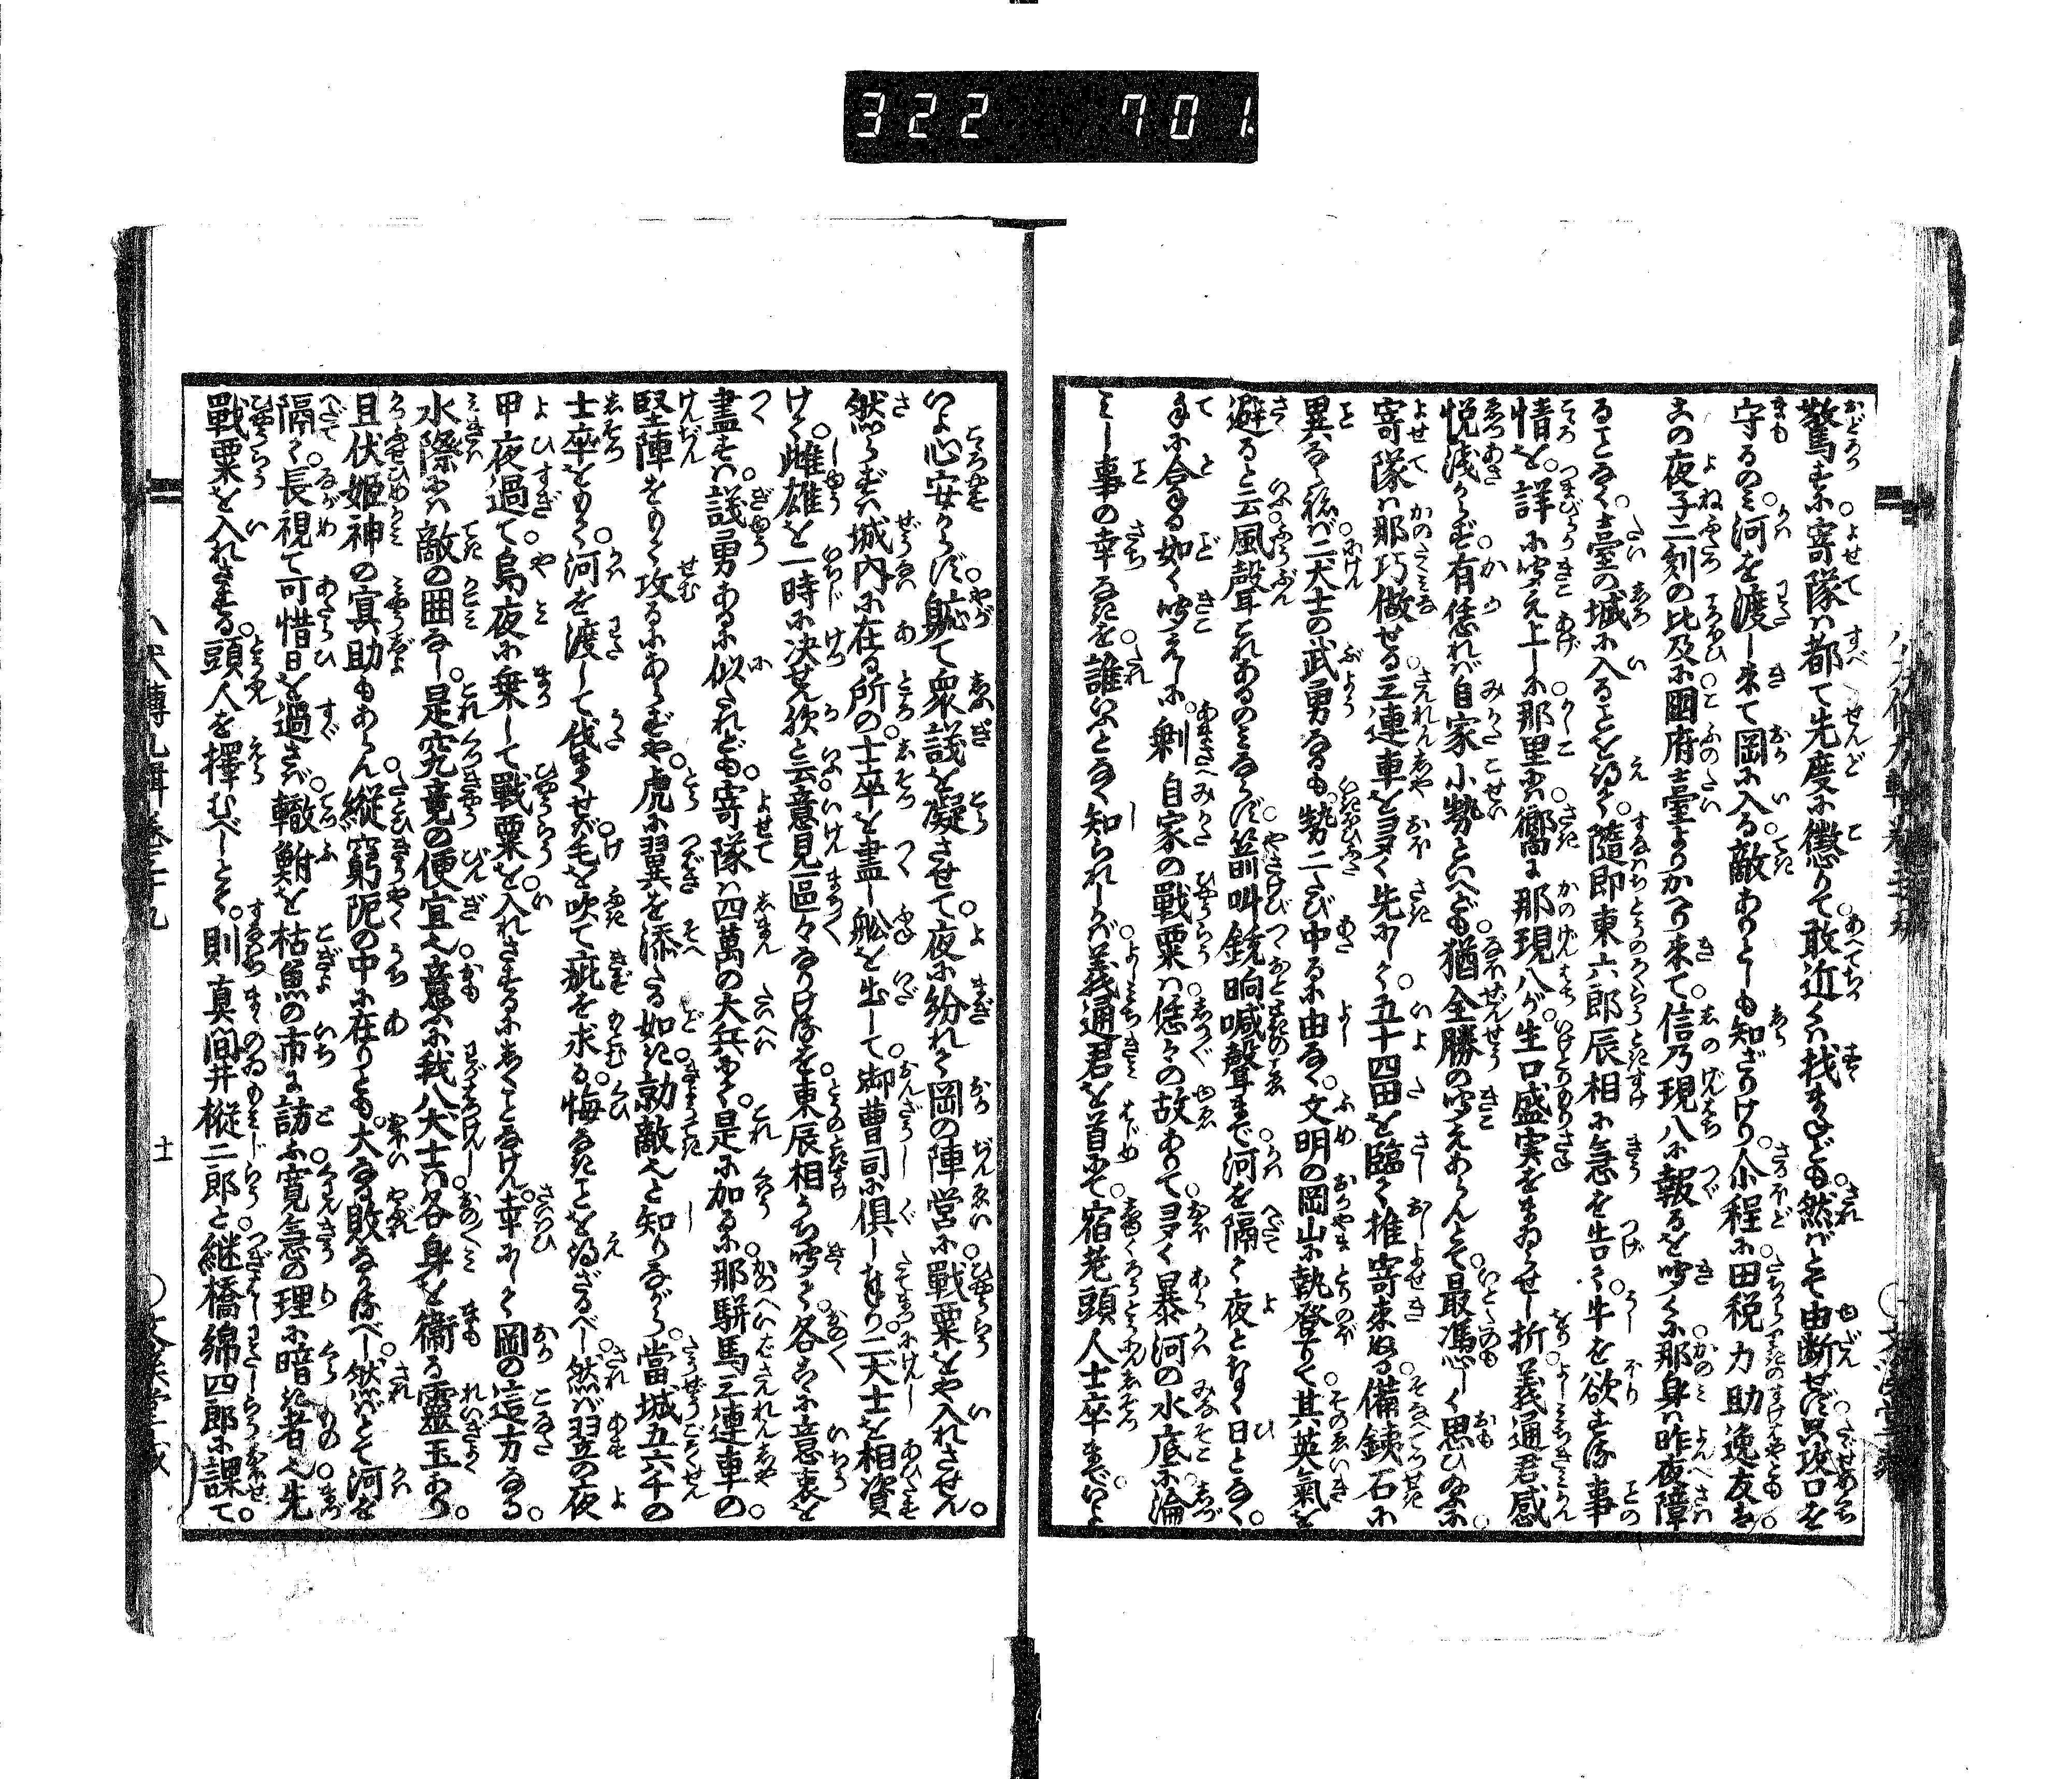 322 701
驚きに寄隊ハ都て先度に懲りて敢近くハ找まねども然ばとて由断せず只攻口を
守るのミ河を渡し来て岡に入る敵ありとしも知ざりけり介程に田税力助逸友ハ
その夜子二刻の比及に国府臺よりかへり来て信乃現八に報るを聞くに那身ハ昨夜障
ることなく臺の城に入ることを得て隨即東六郎辰相に急を告て牛を欲する事
情を詳に聞え上しに那里ハ嚮に那現八が生口盛実をまゐらせし折義通君感
悦浅からず有恁れバ自家小勢といへども猶全勝の聞えあらんとて最憑しく思ひぬるに
寄隊ハ那巧做せる三連車を夛く先にして五十四田を臨て推寄来ぬる備鉄石に
異ならねバ二犬士の武勇なるも勢ひ二たび中るに由なく文明の岡山に執登りて其英氣を
避ると云風聲これあるのミならず箭叫鏡响喊聲まで河を隔て夜となく日となく
手に合する如く聞えしに剰自家の戰粟ハ恁々の故ありて夛く暴河の水底に淪
ミし事の幸なきを誰いふとなく知られしかバ義通君を首にて宿老頭人士卒までいと
いよ心安からず軈て衆議を凝させて夜に紛れて岡の陣営に戰粟をや入れさせん
然らずハ城内に在る所の士卒を盡し舩を出して御曹司に倶しまゐり二犬士を相資
けて雌雄を一時に决せん歟と云意見區々なりけるを東辰相うち聞て各ここに意衷を
盡すハ議勇あるに似たれども寄隊ハ四萬の大兵にて是に加るに那駢馬三連車の
堅陣をもて攻るにあらずや虎に翼を添たる如き勍敵也と知りながら當城五六千の
士卒をもて河を渡して伐まくせバ毛を吹て疵を求る悔なきことを得ざるべし然バ翌の夜
甲夜過て烏夜に乗して戰粟を入れさするにますことなけん幸にして岡の這方なる
水際にハ敵の囲なし是究竟の便宜也意ふに我八犬士ハ各身を衞る靈玉あり
且伏姫神の冥助もあらん縦窮阨の中に在りとも大なる敗なかるべし然バとて河を
隔て長視て可惜日を過さバ轍鮒を枯魚の市に訪ふ寛急の理に暗き者也先
戰粟を入れさする頭人を擇むべしとて則真間井樅二郎と継橋綿四郎に課て
八犬傳九輯巻三十九
十一